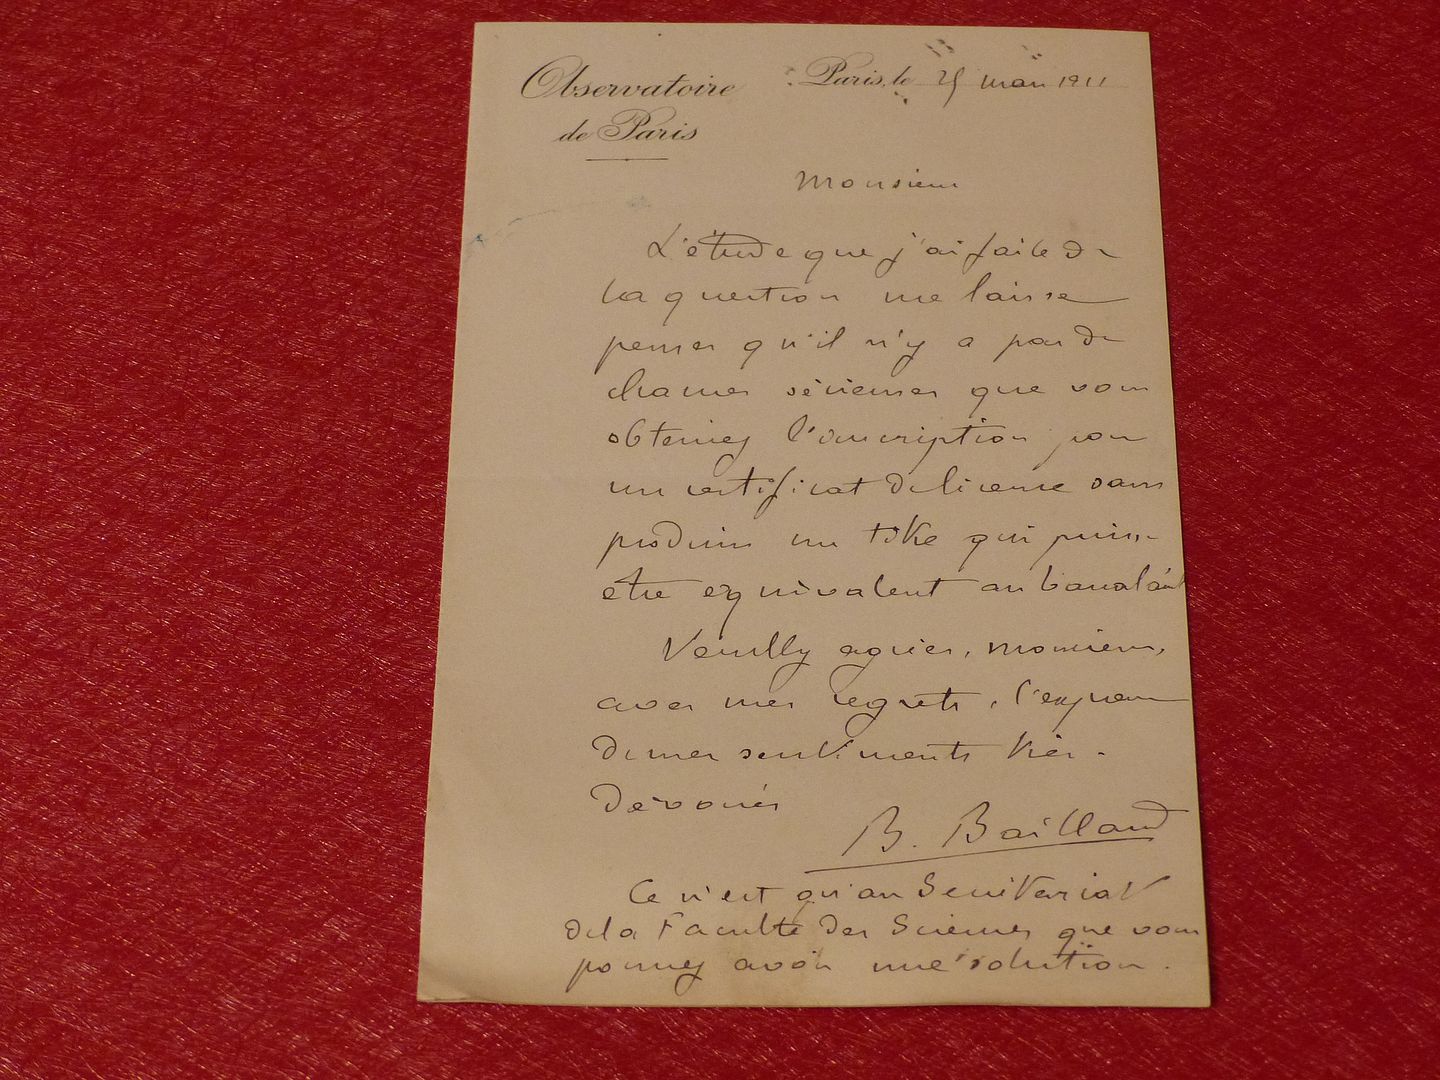 Observatoire
de Paris
Paris, le 25 mai 1911
Monsieur
L'étude que j'ai faite de
la question me laisse
penser qu'il n'y a pas de
chances sérieuses que vous
obteniez l'inscription pour
un certificat de licence sans
produire un titre qui puisse
être équivalent au baccalauréat
Veuillez agréer, Monsieur,
avec mes regrets, l'expression
de mes sentiments très
dévoués
B. Baillaud
Ce n'est qu'au Secrétariat
de la Faculté des Sciences que vous
pourrez avoir une solution.